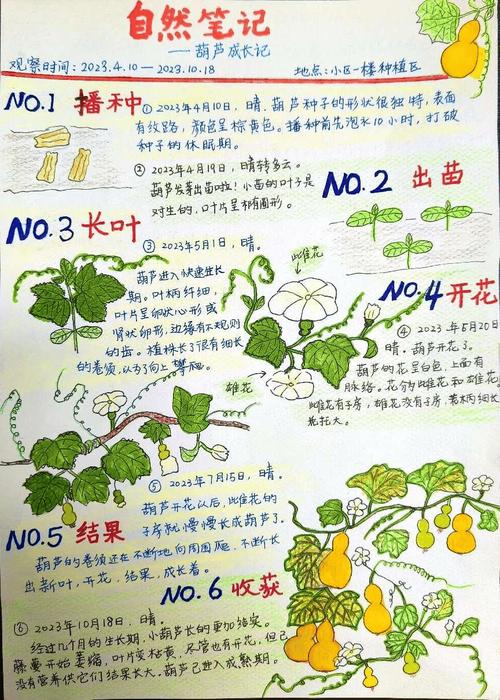 自然笔记
——葫芦成长记
观察时间：2023.4.10—2023.10.18
地点：小区一楼种植区
NO.1 播种
① 2023年4月10日，晴。葫芦种子的形状很独特，表面
有纹路，颜色呈棕黄色。播种前先泡水10小时，打破
种子的休眠期。
② 2023年4月19日，晴转多云。
葫芦发芽出苗啦！小苗的叶子是
对生的，叶片呈椭圆形。
NO.2 出苗
NO.3 长叶
③ 2023年5月1日，晴。
葫芦进入快速生长
期。叶柄纤细，
叶片呈卵状心形或
肾状卵形，边缘有不规则
的齿。植株长了很有细长
的卷须，以利向上攀爬。
此雌花
雄花
NO.4 开花
④ 2023年5月20日
晴。葫芦开花了。
葫芦的花呈白色，上面有
脉络。花分雌花和雄花
雌花有子房，雄花没有子房，花柄细长
⑤ 2023年7月15日，晴。
葫芦开花以后，雌花的
子房就慢慢长成葫芦了。
NO.5 结果
葫芦的卷须还在不断地向周围爬，不断长
出新叶，开花，结果，成长着。
NO.6 收获
⑥ 2023年10月18日，晴。
经过几个月的生长期，小葫芦长的更加结实。
藤蔓开始萎缩，叶片变枯黄，尽管也有开花，但已
没有营养供它们结果长大。葫芦已进入成熟期。